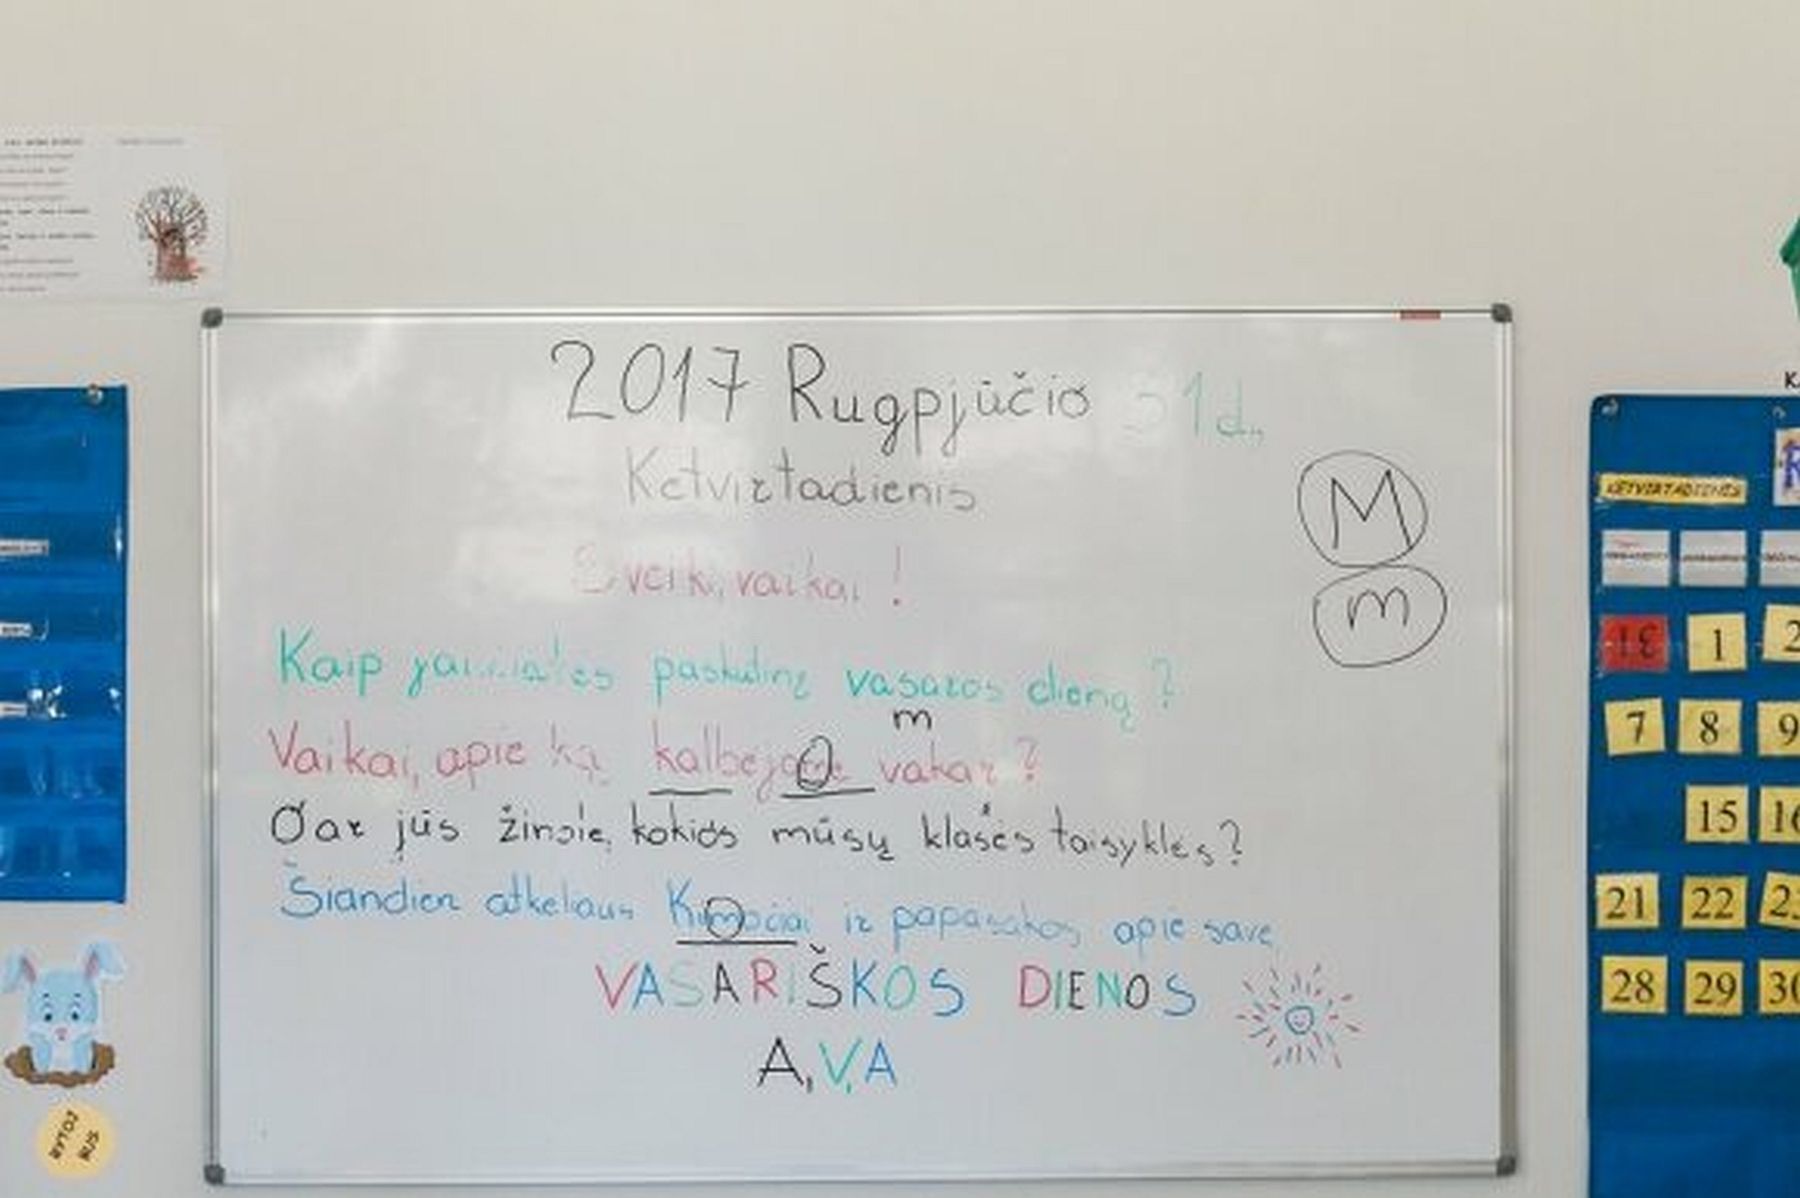 2017 Rugpjūčio 31 d.,
Ketvirtadienis
Sveiki, vaikai!
Kaip jaučiatės paskutinę vasaros dieną?
m
Vaikai, apie ką kalbėjome vakar?
O ar jūs žinote, kokios mūsų klasės taisyklės?
Šiandien atkeliaus Kimočiai ir papasakos apie save.
VASARIŠKOS DIENOS
A, V, A
M
m
KETVIRTADIENIS
31 1 2
7 8 9
15 16
21 22 23
28 29 30